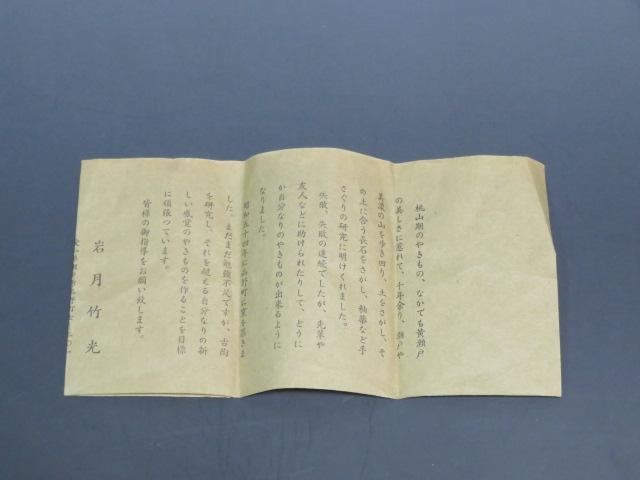 桃山期のやきもの、なかでも黄瀬戸
の美しさに惹れて、十年余り、瀬戸や
美濃の山を歩き回り、土をさがし、そ
の土に合う長石をさがし、釉薬など手
さぐりの研究に明けくれました。
失敗、失敗の連続でしたが、先輩や
友人などに助けられたりして、どうに
か自分なりのやきものが出来るように
なりました。
昭和五十四年に品野町に窯を築きま
した。まだまだ勉強不足ですが、古陶
を研究し、それを超える自分なりの新
しい感覚のやきものを作ることを目標
に頑張っています。
皆様の御指導をお願い致します。
岩月竹光